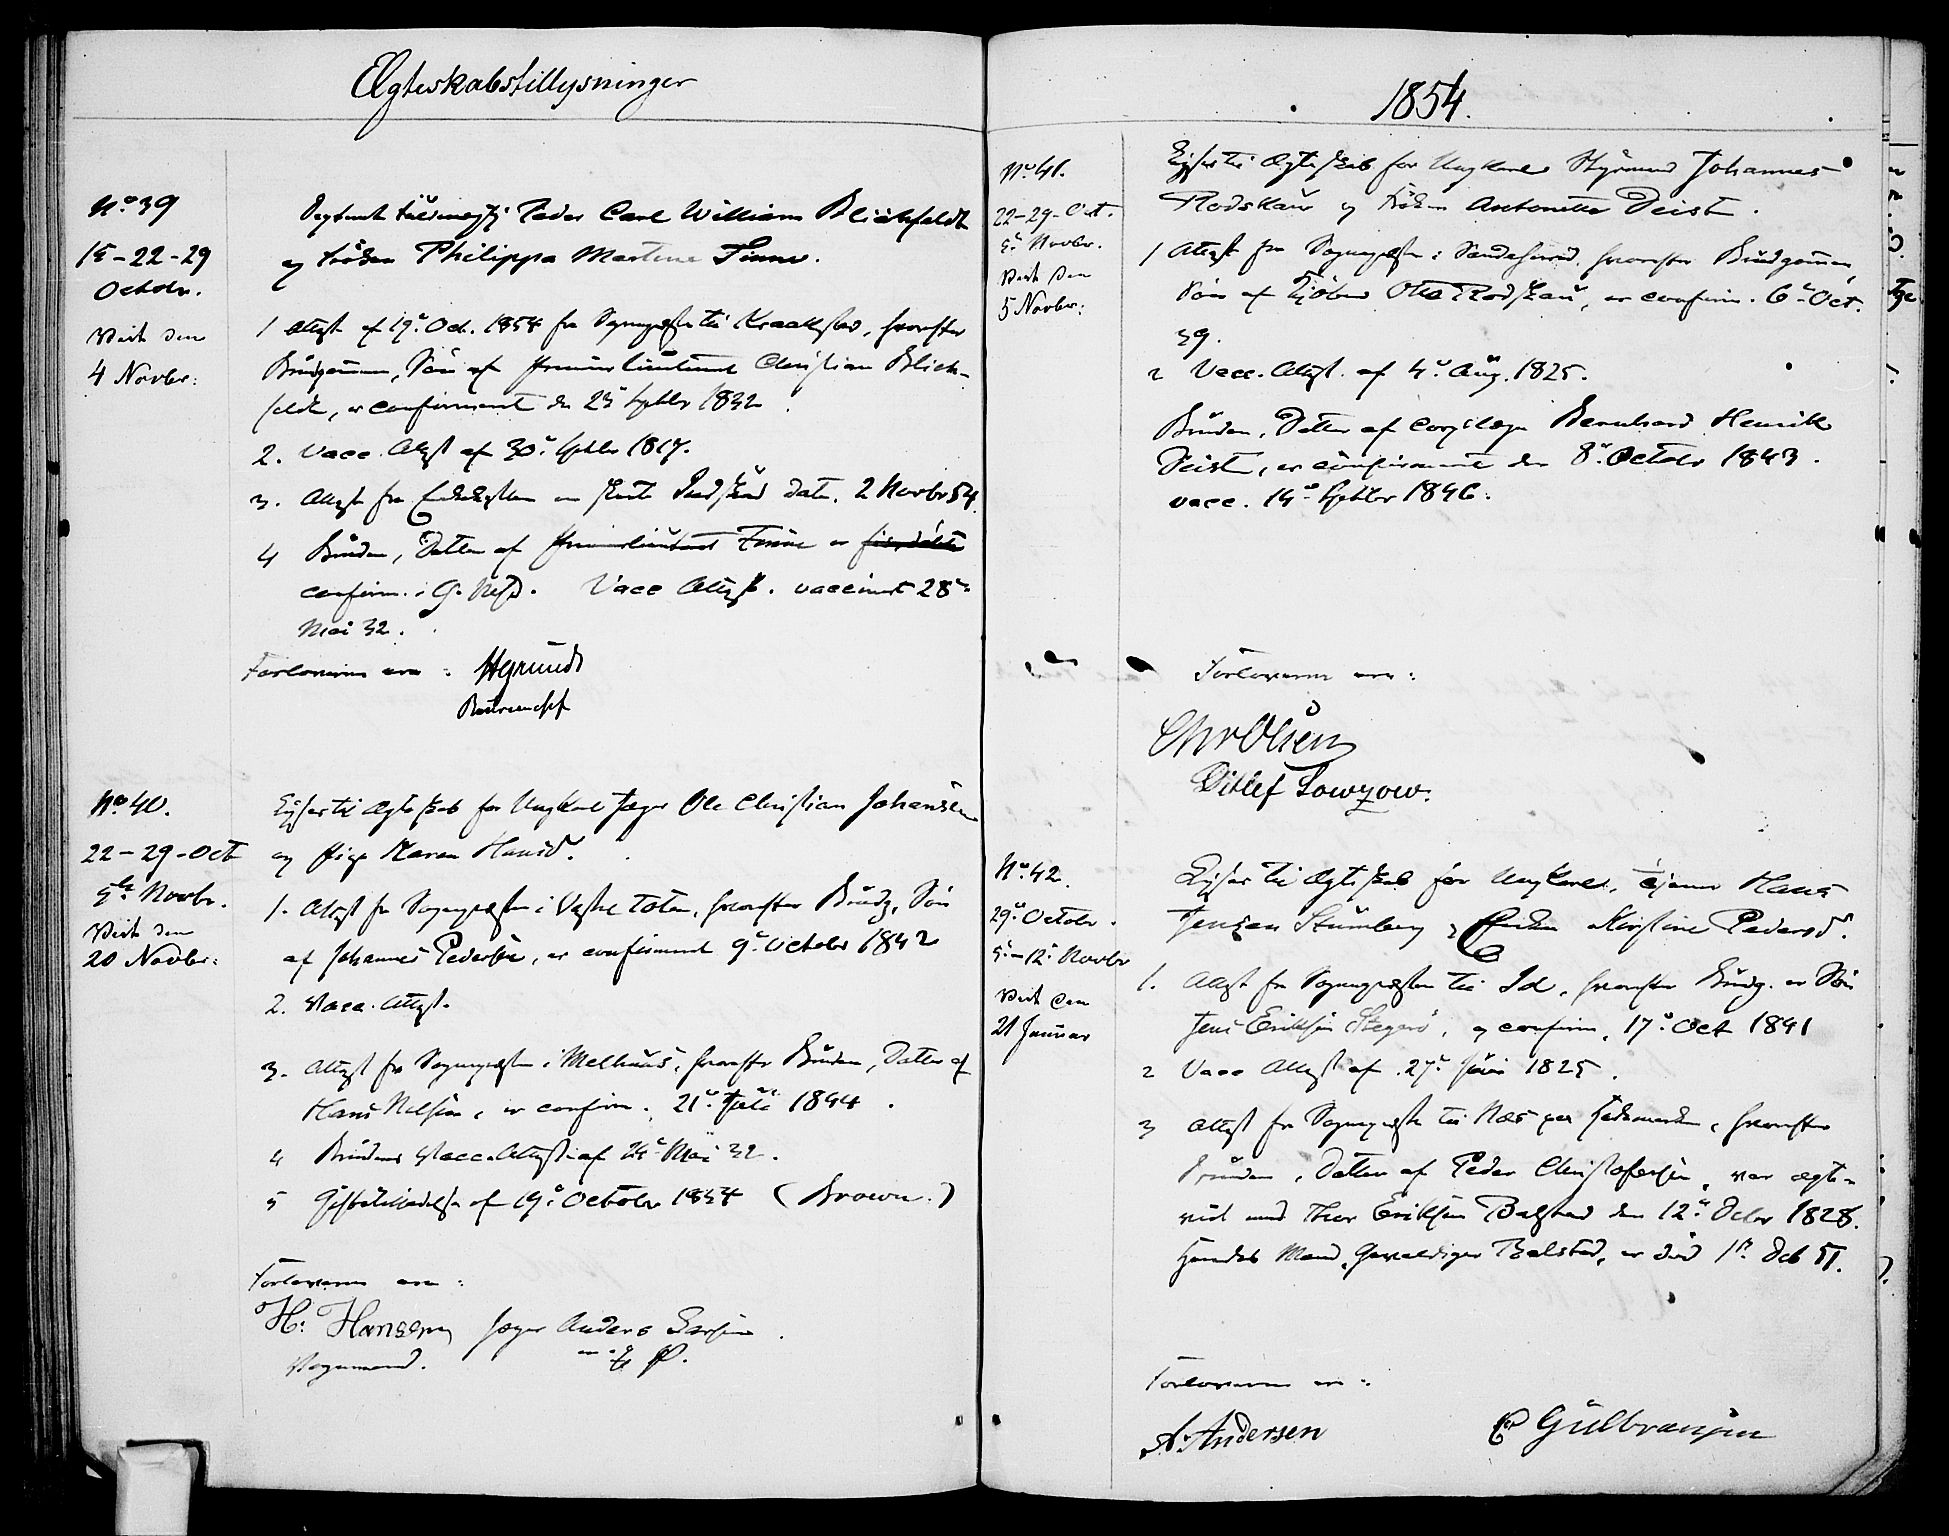 Ægteskabstillysninger
No 39
15-22-29
Octobr.
Viet den
4 Novbr:
Fuldmægtig Peder Carl William Blichfeldt
og Frøken Philippa Martine Finne.
1 Attest af 19de Oct. 1854 fra Sognepræsten til Kraakstad, hvorefter
Brudgommen, Søn af Premierlieutenant Christian Blich-
feldt, er confirmeret den Septbr 1832.
2. Vacc. Attest af 30te Septbr 1817.
3. Attest fra Enkekassen om skeet Indskud dat. 2 Novbr 54.
4 Bruden, Datter af Premierlieutenant Finne er
confirm. i Vacc Attest. vaccineret 28de
Mai 32.
Forloverne ere: Hgrundt
No 40.
22-29-Oct
5te Novbr.
Viet den
20 Novbr:
Lyser til Ægteskab for Ungkarl Jæger Ole Christian Johansen
og Pige Maren Hansd.
1. Attest fra Sognepræsten i Vestre Toten, hvorefter Brudg., Søn
af Johannes Pedersen, er confirmeret 9de October 1842
2. Vacc. Attest.
3. Attest fra Sognepræsten i Melhuus, hvorefter Bruden, Datter af
Hans Nilsen, er confirm. 21de Juli 1844.
4 Brudens Vacc. Attest af 24de Mai 32.
5 Giftetilladelse af 19de October 1854 (Brown.)
Forloverne ere:
H: Hansen Jæger Anders Larsen
Vognmand. m. f. P.
1854.
No 41.
22-29-Oct.
5te Novbr.
Viet den
5 Novbr:
Lyser til Ægteskab for Ungkarl Styrmand Johannes
Rodskau og Frøken Antonette Deist.
1 Attest fra Sognepræsten i Sandeherred, hvorefter Brudgommen,
Søn af Otto Rodskau, er confirm. 6te Oct.
39.
2 Vacc. Attest. af 4de Aug. 1825.
Bruden, Datter af Corpslæge Bernhard Henrik
Deist, er confirmeret den 8de Octobr 1843.
vacc. 14de Septbr 1846.
Forloverne ere:
Chr Olsen
Ditlef Lowzow.
No 42.
29de Octobr.
5te-12te Novbr
Viet den
21 Januar
Lyser til Ægteskab for Ungkarl, Tjener Hans
Jensen Stumberg og Enken Kirstine Pedersd.
1. Attest fra Sognepræsten til Id, hvorefter Brudg. er Søn
Jens Eriksen, og confirm. 17de Oct 1841
2 Vacc Attest af 27de Juni 1825.
3 Attest fra Sognepræsten til Næs paa Hedemarken, hvorefter
Bruden, Datter af Peder Christofersen, var ægte-
viet med Thor Eriksen Balstad den 12te Octbr 1828.
Hendes Mand, Gevaldiger Balstad, er død 1ste Oct 51.
Forloverne ere:
A. Andersen
Gulbransen